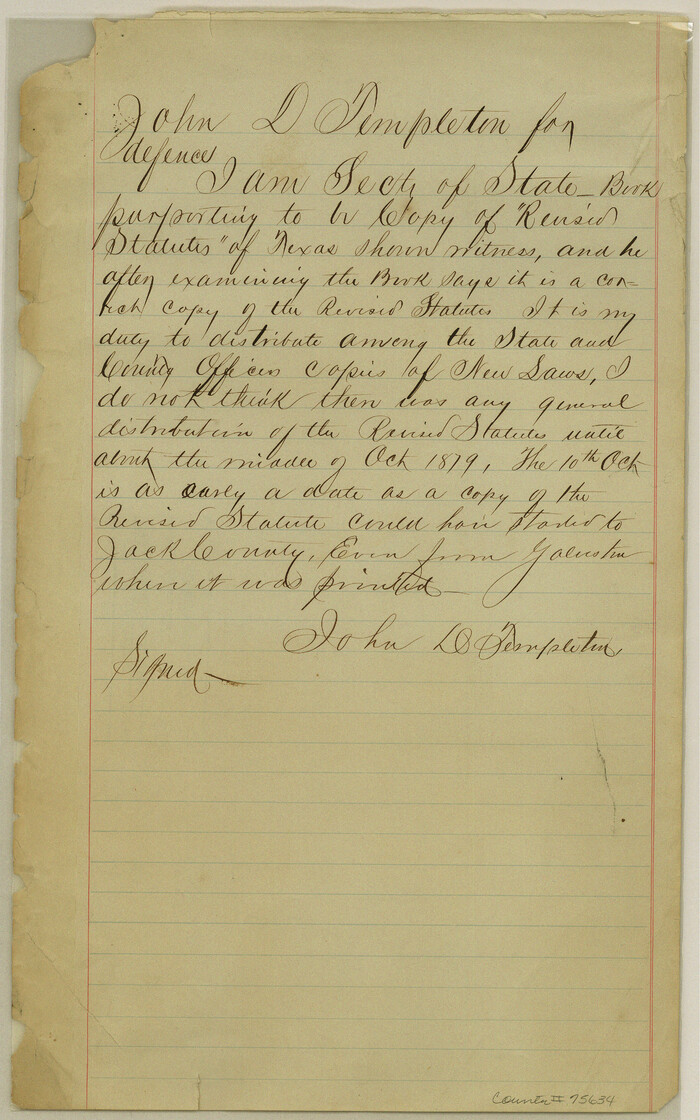 John D Templeton for
defence
I am Secty of State - Book
purporting to be Copy of "Revised
Statutes" of Texas shown witness, and he
after examining the Book says it is a cor=
rect copy of the Revised Statutes It is my
duty to distribute among the State and
County Officers copies of New Laws, I
do not think there was any general
distribution of the Revised Statutes until
about the middle of Oct 1879, The 10th Oct
is as early a date as a copy of the
Revised Statute could have started to
Jack County, Even from Galveston
when it was printed -
John D Templeton,
Signed -
Counter # 75634